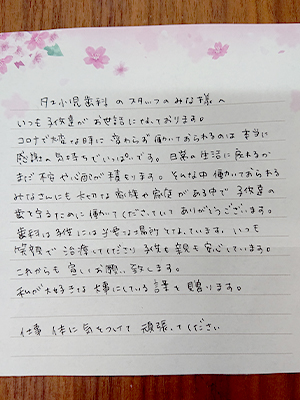 小児歯科のスタッフのみな様へ
いつも子供達がお世話になっております。
コロナで大変な時に変わらず働いておられるのは本当に
感謝の気持ちでいっぱいです。日常の生活に戻れるか
まだ不安や心配が積もります。そんな中働いておられる
みなさんにも大切な家族や家庭がある中で子供達の
歯を守るために働いてくださっていてありがとうございます。
歯科は子供には必要な場所でもあしています。いつも
笑顔で治療してくださり子供も親も安心しています。
これからも宜しくお願い致します。
私が大好きな大事にしている言葉を贈ります。
仕事 体に気をつけて 頑張ってください